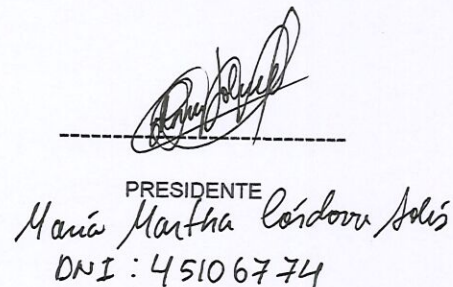 PRESIDENTE
María Martha Córdova Solís
DNI : 45106774